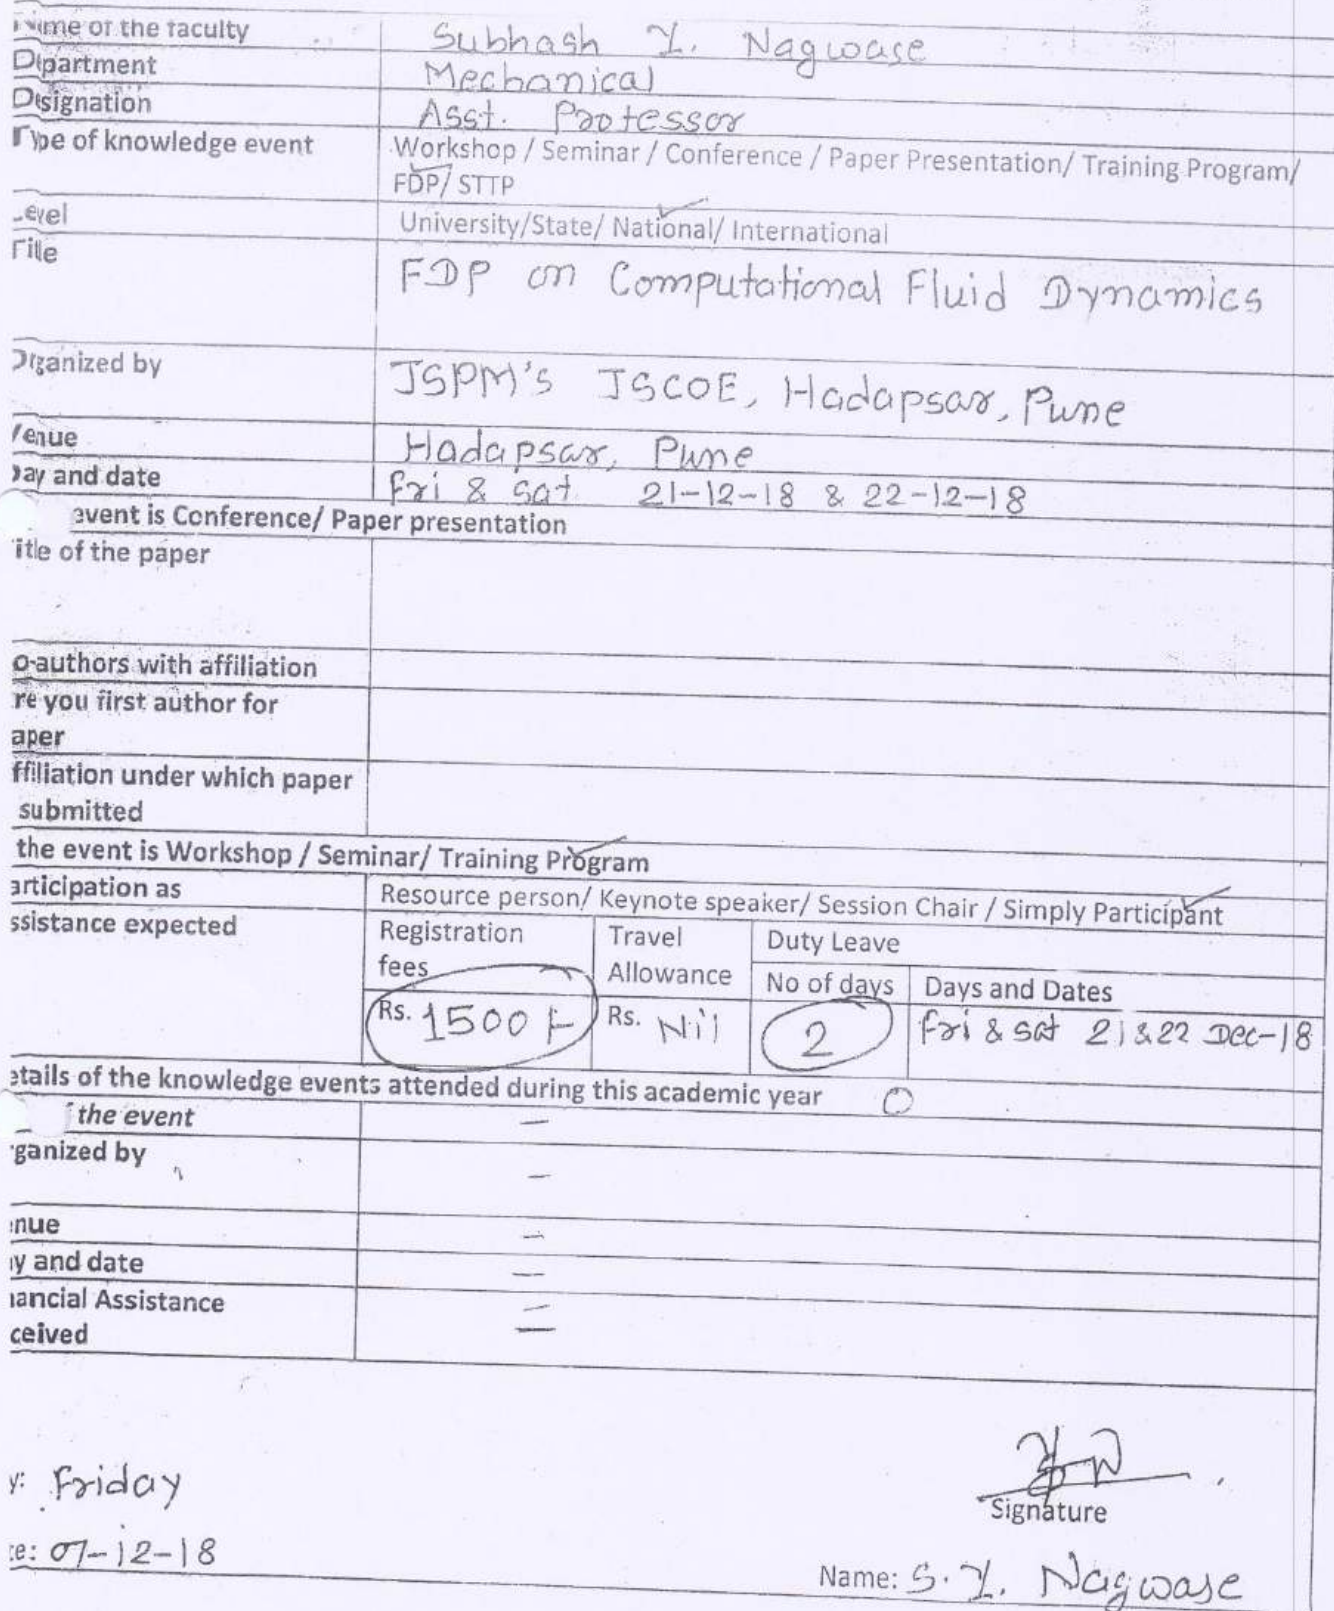 Name of the faculty Subhash Y. Nagwase
Department Mechanical
Designation Asst. Professor
Type of knowledge event Workshop / Seminar / Conference / Paper Presentation/ Training Program/
FDP/ STTP
Level University/State/ National/ International
Title FDP on Computational Fluid Dynamics
Organized by JSPM's JSCOE, Hadapsar, Pune
Venue Hadapsar, Pune
Day and date Fri & Sat 21-12-18 & 22-12-18
event is Conference/ Paper presentation
itle of the paper
o-authors with affiliation
re you first author for
aper
ffiliation under which paper
submitted
the event is Workshop / Seminar/ Training Program
articipation as Resource person/ Keynote speaker/ Session Chair / Simply Participant
ssistance expected Registration Travel Duty Leave
fees Allowance No of days Days and Dates
Rs. 1500/- Rs. Nil 2 Fri & Sat 21 & 22 Dec-18
etails of the knowledge events attended during this academic year 0
the event –
rganized by –
enue –
ay and date –
nancial Assistance –
ceived –
y: Friday
Signature
te: 07-12-18
Name: S. Y. Nagwase